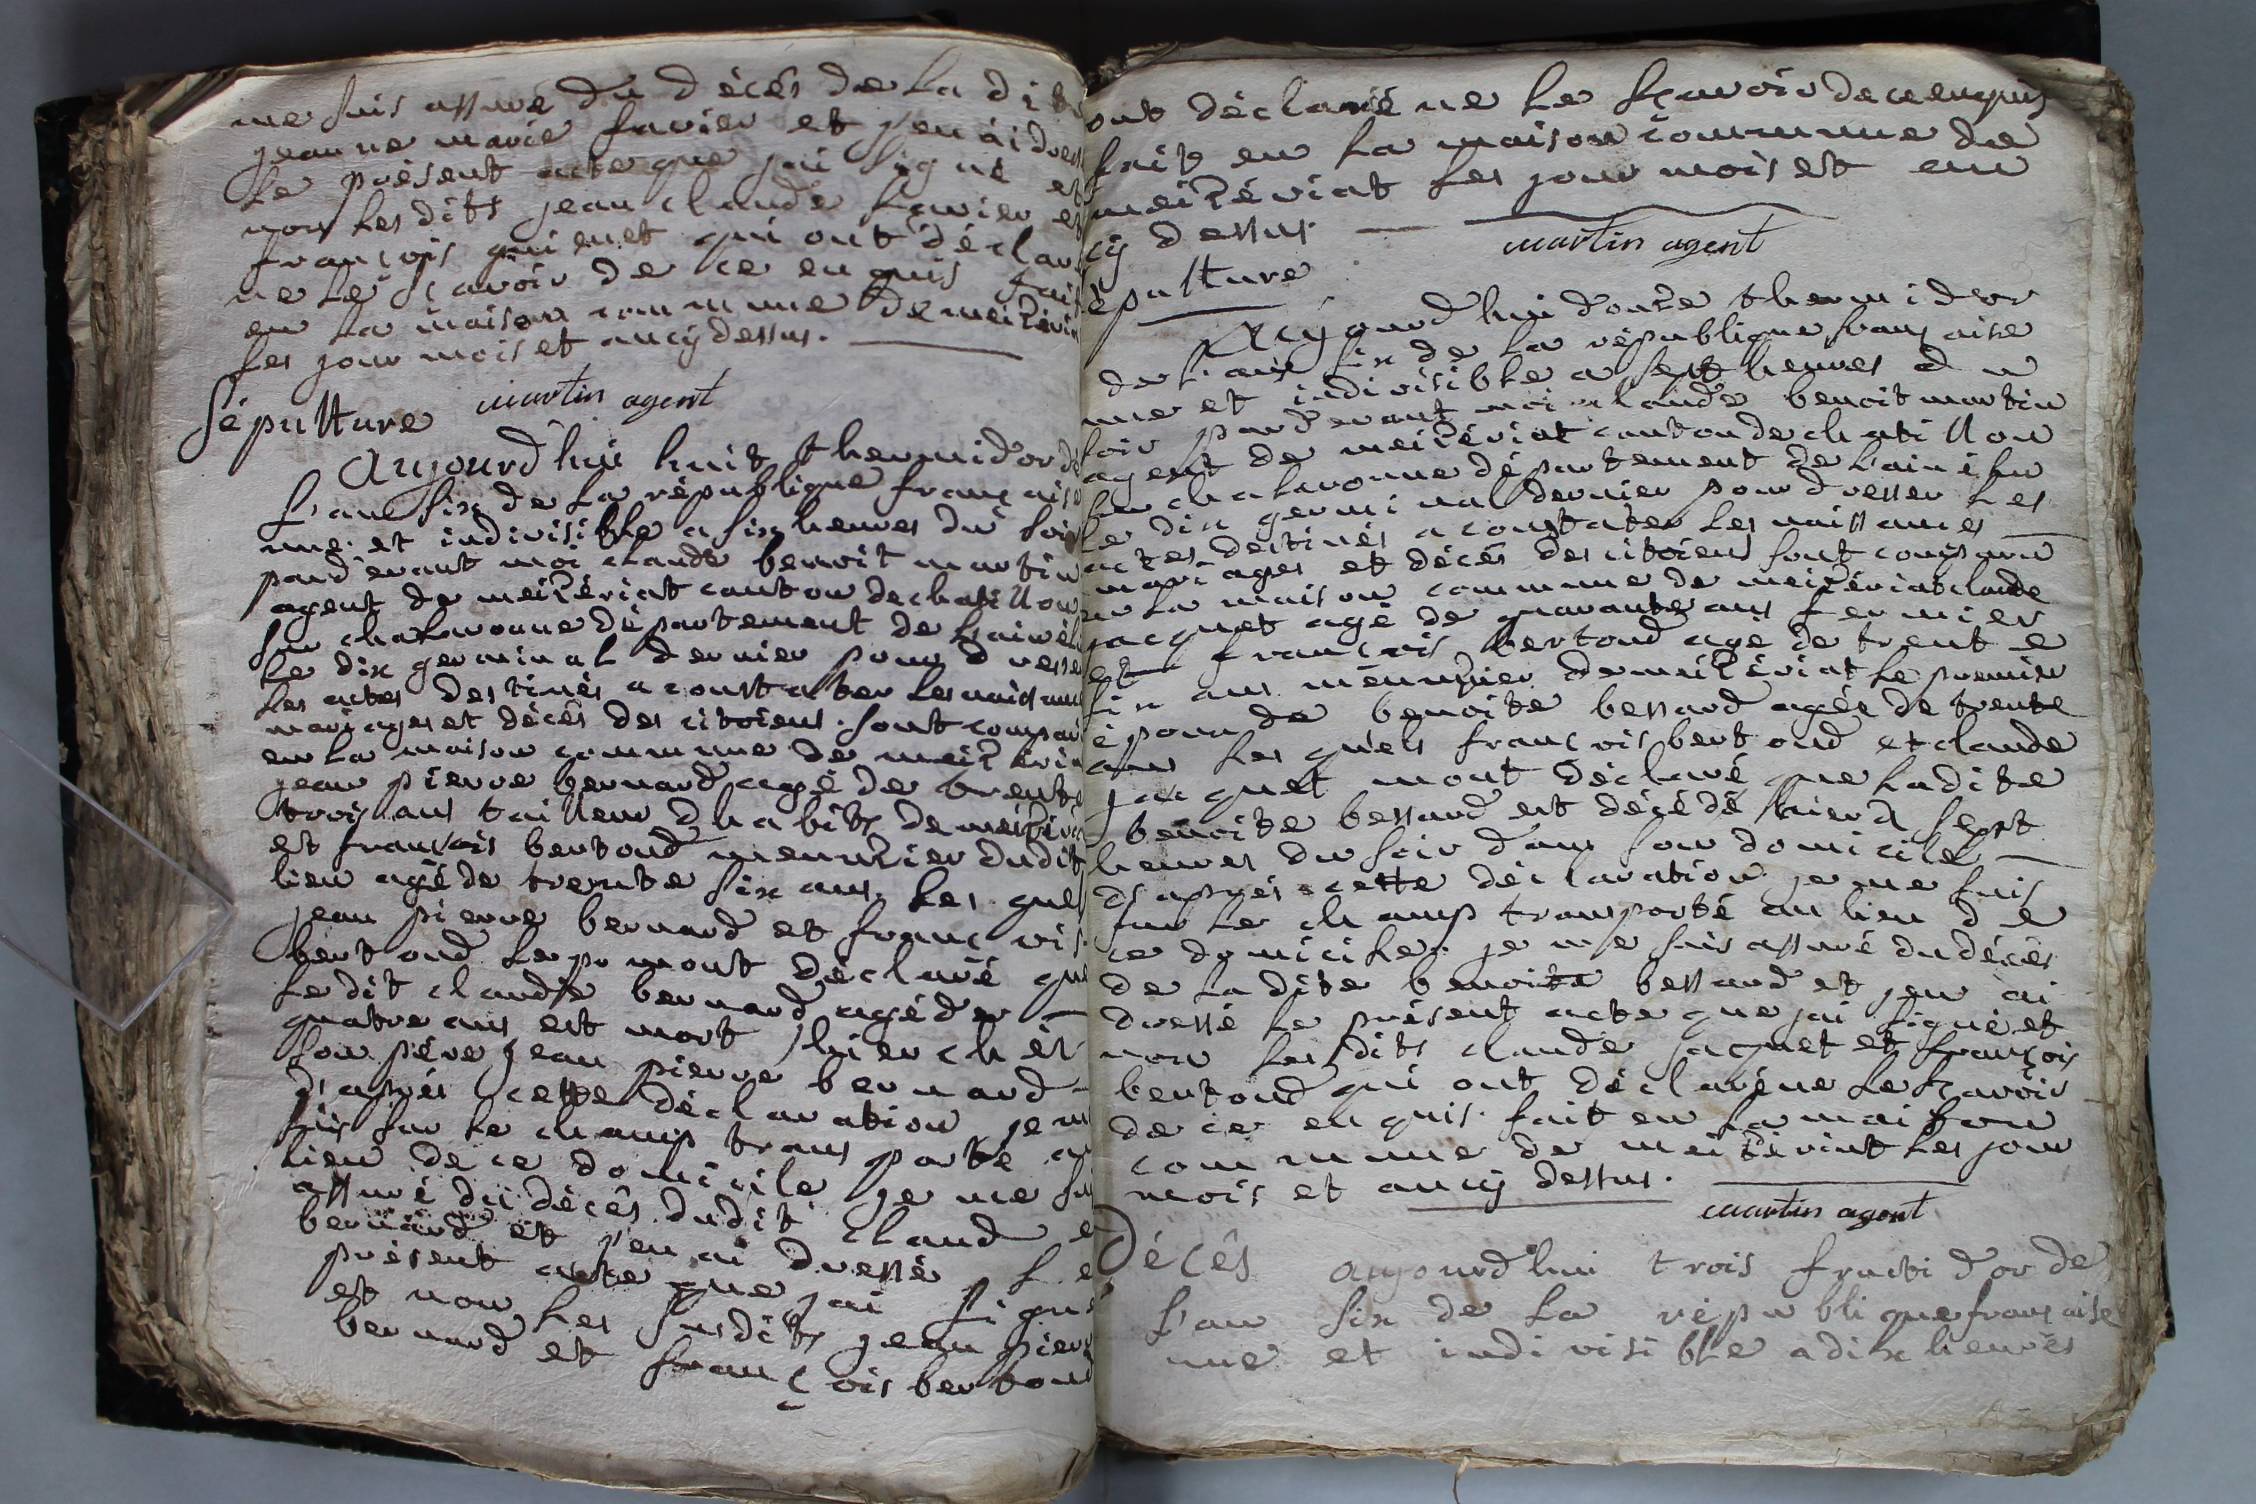 me suis assuré du décés de la dit
jeanne marie favier et jen ai dres
le présent acte que jai signé et
non les dits jean claude favier et
françois guienet qui ont déclar
ne le sçavoir de ce enquis fait
en la maison commune de meizéria
les jour mois et an cy dessus.
martin agent
Sépulture
Aujourd'hui huit thermidor de
l'ane six de la république française
une et indivisible a six heures du soir
pard'evant moi claude benoit martin
agent de meizériat canton de chatillon
sur chalaronne département de l'ain élu
le dix germinal dernier pour dresser
les actes destinés a constater les naissance
mariages et décés des citoiens. sont compar
en la maison commune de meizéria
jean pierre bernard agé de trente
trois ans tailleur dhabits de meizéria
et françois bertoud meunzier dudit
lieu agé de trente six ans, les quels
jean pierre bernard et françois
bertoud les po mont déclaré que
le dit claude bernard agé de
quatre ans est mort hier chés
son pére jean pierre bernard
d'aprés cette déclaration je m
suis sur le champ transporté au
lieu de ce domicile je me sui
assuré du décés dudit claude
bernard et j'en ai dressé le
présent acte que jai signé
et non les susdits jean pierr
bernard et françois bertoud
ont déclaré ne le sçavoir de ce enquis
fait en la maison commune de
meizériat les jour mois et an
cy dessus.
martin agent
épulture
Aujourd'hui douze thermidor
de l'an six de la république française
une et indivisible a sept heures du
soir pard'evant moi claude benoit martin
agent de meizériat canton de chatillon
sur chalaronne département de l'ain élu
le dix germinal dernier pour dresser les
actes destinés a constater les naissances
mariages et décés des citoiens sont comparu
en la maison commune de meizériat claude
jacquet agé de quarante ans fermier
et françois bertoud agé de trente
six ans meunzier de meizériat le premier
époux de benoite bessard agée de trente
ans les quels françois bertoud et claude
jacquet mont déclaré que ladite
benoite bessard est décédé hier a sept
heures du soir dans son domicile
d'aprés cette déclaration je me suis
sur le champ transporté au lieu de
ce domicile. je me suis assuré du décés
de la dite benoite bessard et jen ai
dressé le présent acte que jai signé et
non les dits claude jacquet et françois
bertoud qui ont déclaré ne le sçavoir
de ce enquis. fait en la maison
commune de meizériat les jour
mois et an cy dessus.
martin agent
Décés aujourd'hui trois fructidor de
l'an six de la république française
une et indivisible a dix heures